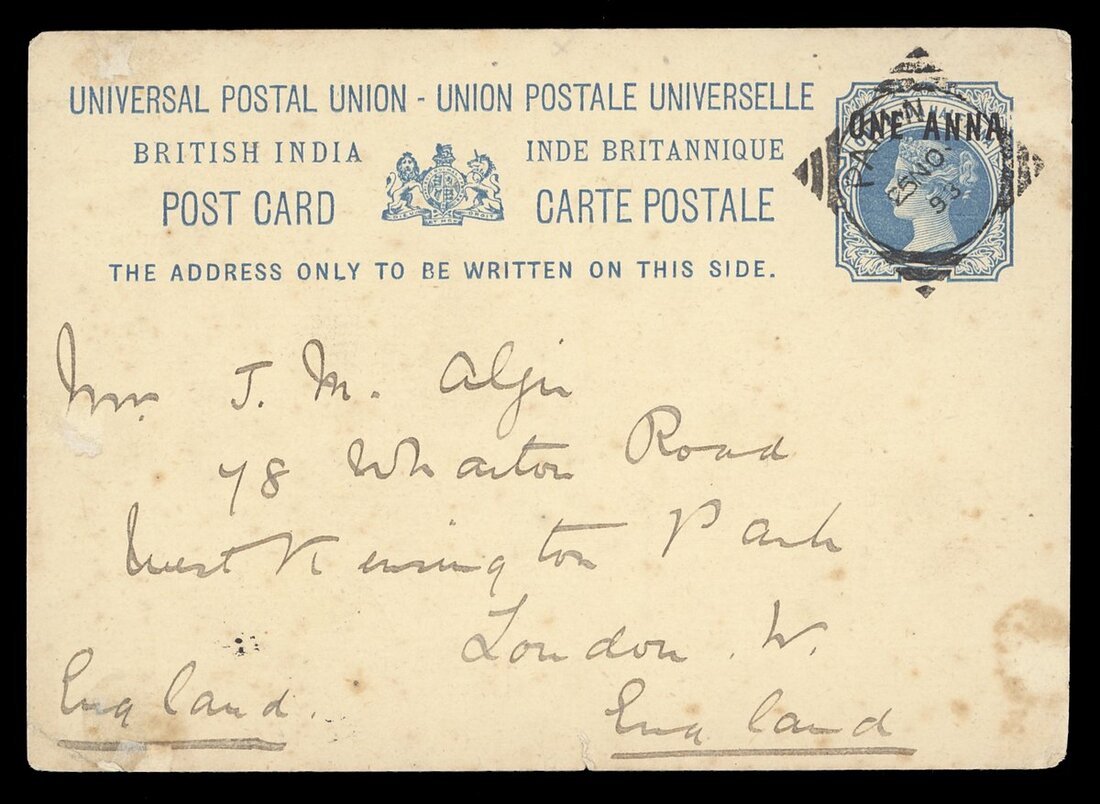 UNIVERSAL POSTAL UNION - UNION POSTALE UNIVERSELLE
BRITISH INDIA INDE BRITANNIQUE
POST CARD CARTE POSTALE
THE ADDRESS ONLY TO BE WRITTEN ON THIS SIDE.
ONE ANNA
25 NO.
93
J. M. Alger
78 Wharton Road
West Kensington Park
London. W.
England. England